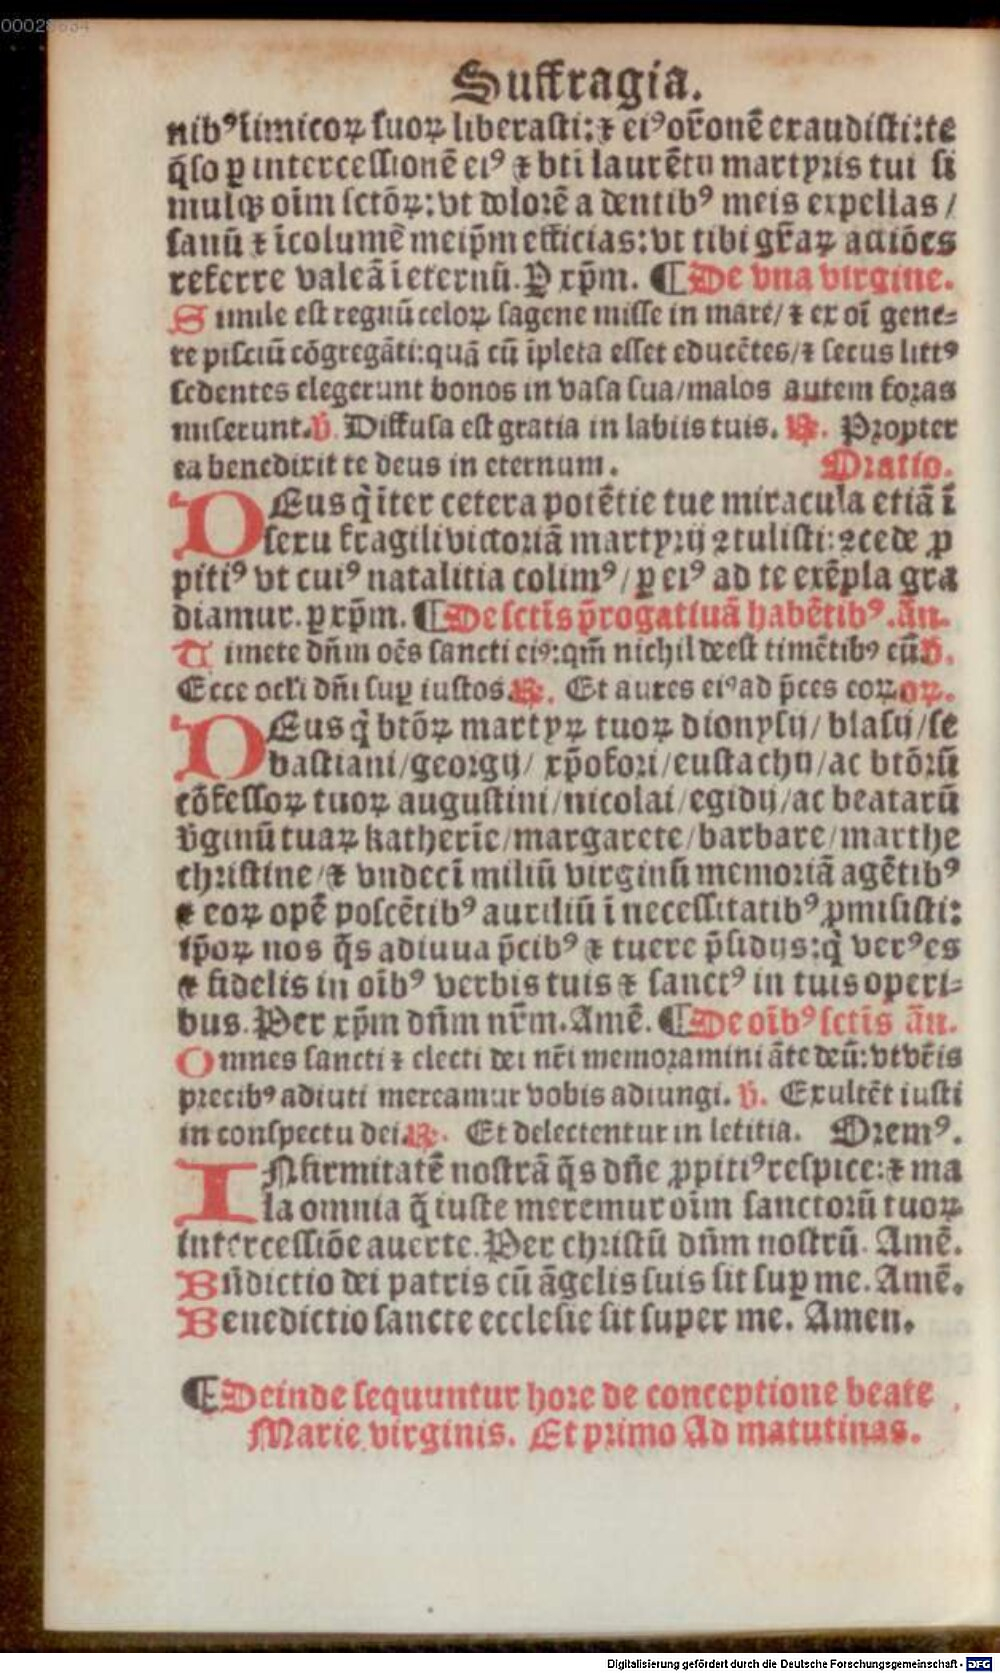 00028634
Suffragia.
nibꝰ inimicoꝝ suoꝝ liberasti: ⁊ eiꝰ or̄onē exaudisti: te
q̄so ꝑ intercessionē eiꝰ ⁊ bt̄i laurētij martyris tui si
mulqꝫ oīm sctōꝝ: vt dolorē a dentibꝰ meis expellas /
sanū ⁊ īcolumē meip̄m efficias: vt tibi gr̄aꝝ actiōes
referre valeā ī eternū. P xp̄m. ¶ De vna virgine.
Simile est regnū celoꝝ sagene misse in mare / ⁊ ex oī gene-
re pisciū cōgregāti: quā cū īpleta esset educētes / ⁊ secus littꝰ
sedentes elegerunt bonos in vasa sua / malos autem foras
miserunt. ℣. Diffusa est gratia in labiis tuis. ℟. Propter
ea benedixit te deus in eternum. Oratio.
DEus q̄ iter cetera potētie tue miracula etiā ī
sexu fragili victoriā martyrij ꝯtulisti: ꝯcede ꝓ
pitiꝰ vt cuiꝰ natalitia colimꝰ / ꝑ eiꝰ ad te exēpla gra
diamur. ꝑ xp̄m. ¶ De sctīs p̄rogatiuā habētibꝰ. añ.
Timete dn̄m oēs sancti eiꝰ: qm̄ nichil deest timētibꝰ eū. ℣.
Ecce ocl̄i dn̄i suꝑ iustos. ℟. Et aures eiꝰ ad p̄ces eoꝝ. oꝝ.
DEus q̄ btōꝝ martyꝝ tuoꝝ dionysij / blasij / se
bastiani / georgij / xp̄ofori / eustachij / ac btōrū
cōfessoꝝ tuoꝝ augustini / nicolai / egidij / ac beatarū
v̄ginū tuaꝝ katherīe / margarete / barbare / marthe
christine / ⁊ vndecī miliū virginū memoriā agētibꝰ
⁊ eoꝝ opē poscētibꝰ auxiliū ī necessitatibꝰ ꝓmisisti:
ip̄oꝝ nos q̄s adiuua p̄cibꝰ ⁊ tuere p̄sidijs: q̄ verꝰ es
⁊ fidelis in oībꝰ verbis tuis ⁊ sanctꝰ in tuis operi-
bus. Per xp̄m dn̄m nr̄m. Amē. ¶ De oībꝰ sctīs añ.
Omnes sancti ⁊ electi dei nr̄i memoramini āte deū: vt vr̄is
precibꝰ adiuti mereamur vobis adiungi. ℣. Exultēt iusti
in conspectu dei. ℟. Et delectentur in letitia. Oremꝰ.
INfirmitatē nostrā q̄s dn̄e ꝓpitiꝰ respice: ⁊ ma
la omnia q̄ iuste meremur oīm sanctorū tuoꝝ
intercessiōe auerte. Per christū dn̄m nostrū. Amē.
Bn̄dictio dei patris cū āgelis suis sit suꝑ me. Amē.
Benedictio sancte ecclesie sit super me. Amen.
¶ Deinde sequuntur hore de conceptione beate
Marie virginis. Et primo Ad matutinas.
Digitalisierung gefördert durch die Deutsche Forschungsgemeinschaft - DFG